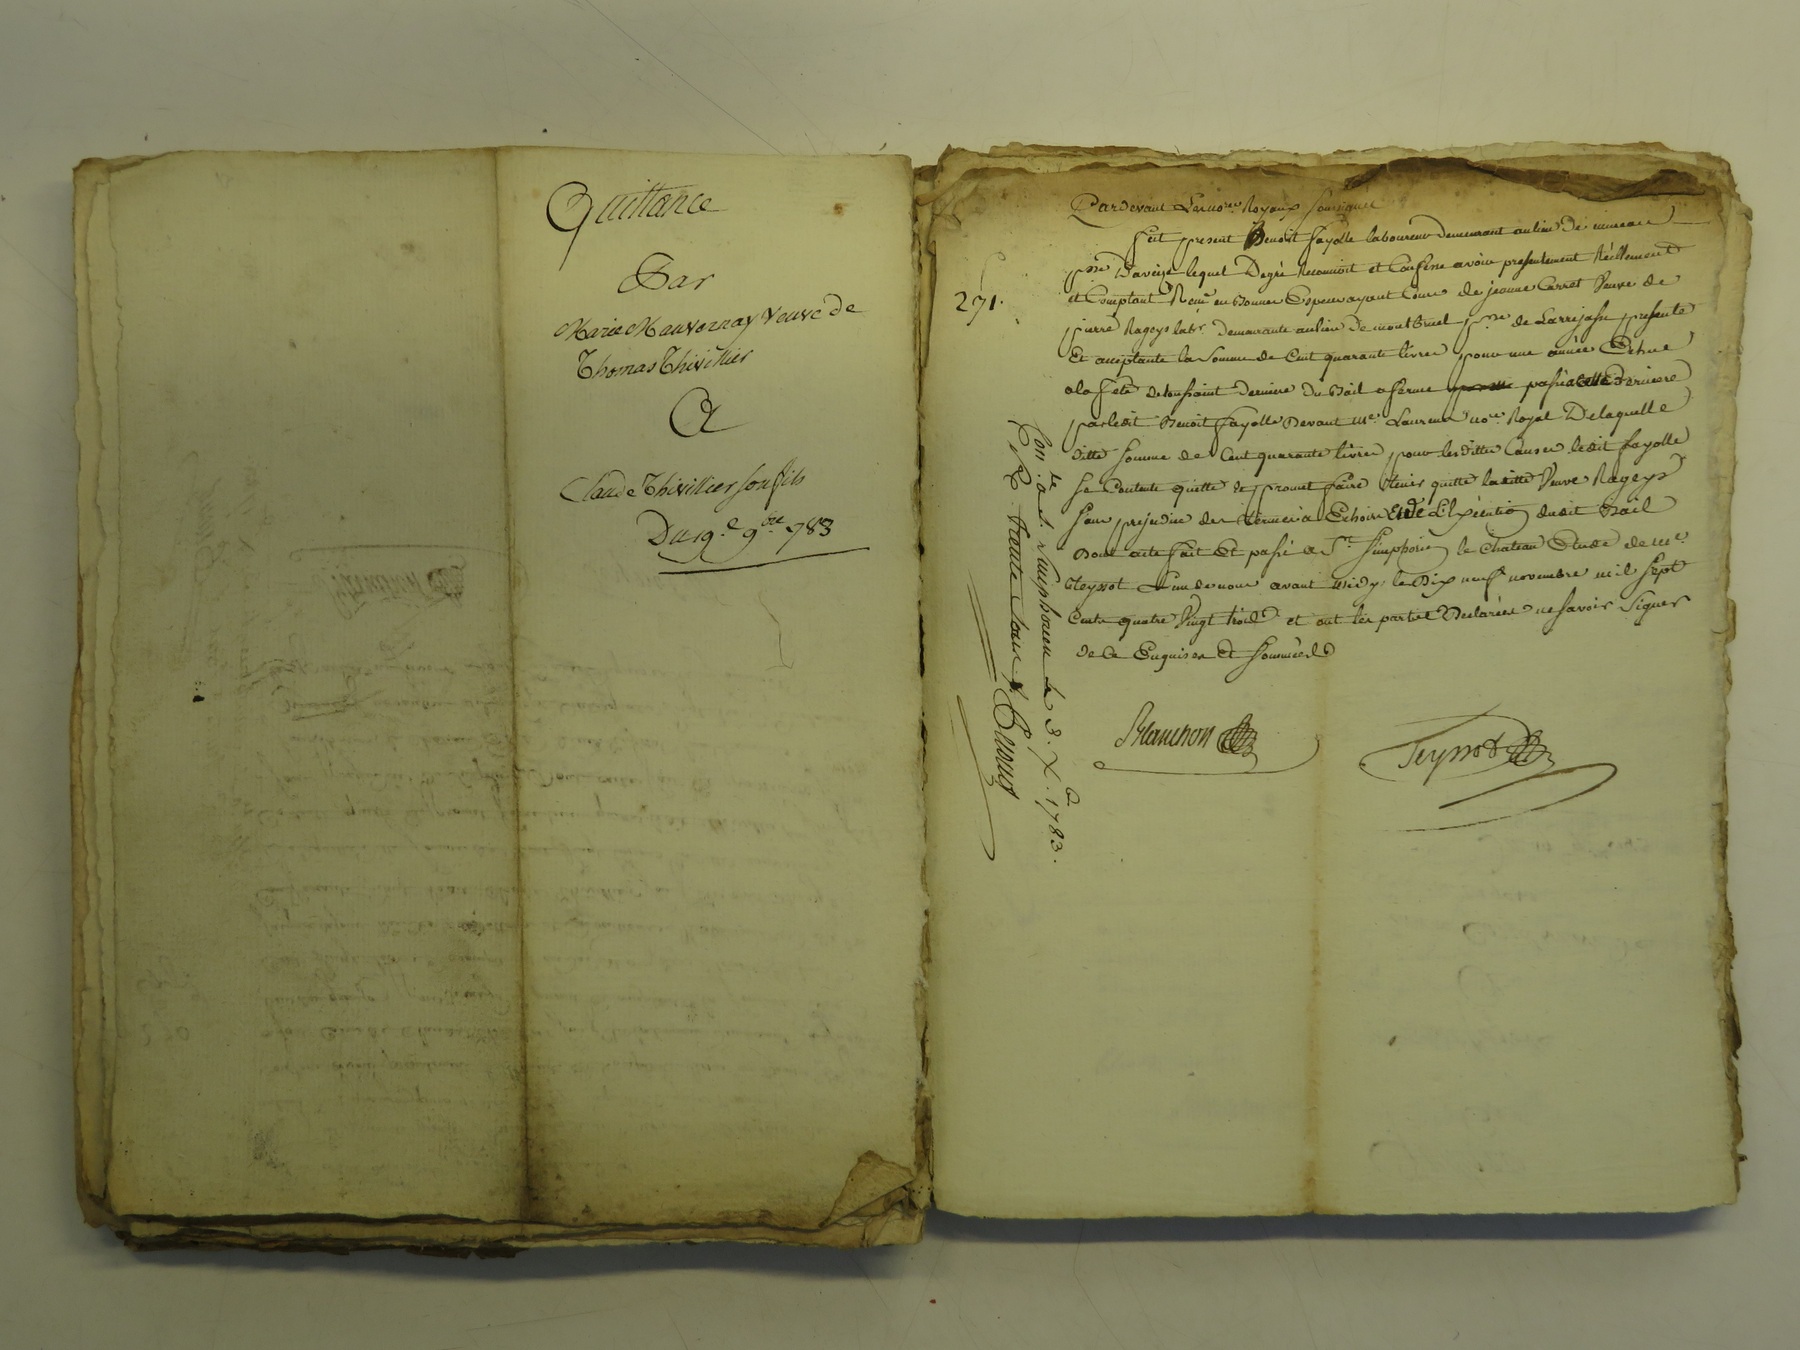 Quittance
Par
Marie Mauvernay Veuve de
Thomas Thivillier
A
Claude Thivillier son fils
Du 19.e 9bre 783
271.
Pardevant Les nores Royaux soussignés
fut present Benoit fayolle laboureur demeurant au lieu de
psse Daveize lequel De gré Reconnoit et Confesse avoir presentement Réellement
et Comptant Receu en Bonnes Especes ayant Cours de jeanne Carret Veuve de
pierre Rageys labr demeurante au lieu de montbruel psse de Larrejasse presente
Et acceptante la Somme de Cent quarante livres pour une année Echue
a la fete de toussaint derniere du Bail a ferme passé derniere
par ledit Benoit fayolle devant me Laurent nore Royal De laquelle
ditte somme de Cent quarante livres pour les dittes Causes ledit fayolle
se Contente quitte et promet faire tenir quitte laditte Veuve Rageys
sans prejudice des termes a Echoir Et de L'Exécution dudit Bail
Dont acte fait Et passé a St Simphorien le Chateau Etude de me
Teyssot L'un de nous avant midy le Dix neuf novembre mil sept
Cents quatre Vingt trois et ont les parties Declarées ne savoir Signer
de Ce Enquises Et sommées
Blanchon
Teyssot
Con.le a St. Simphorien le 3. Xe. 1783.
R. trente Sous